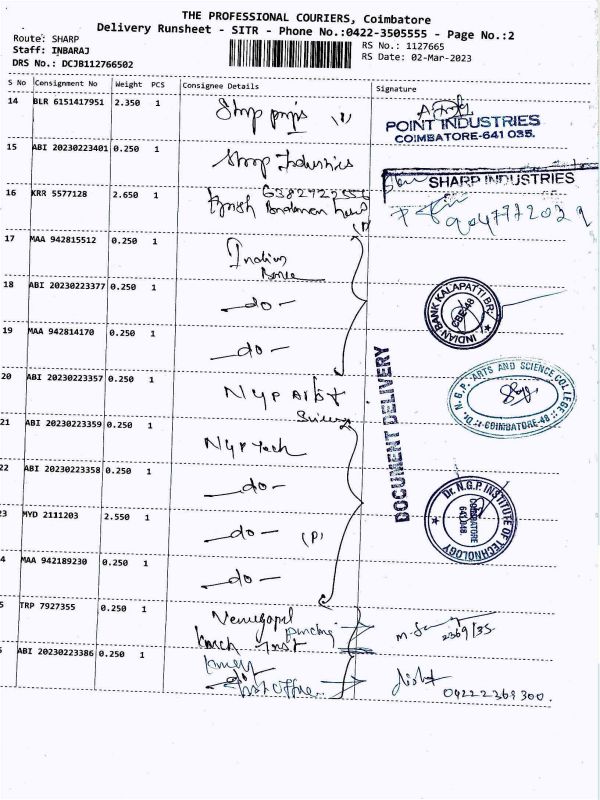 THE PROFESSIONAL COURIERS, Coimbatore
Delivery Runsheet - SITR - Phone No.:0422-3505555 - Page No.:2
Route: SHARP
Staff: INBARAJ
DRS No.: DCJB112766502
RS No.: 1127665
RS Date: 02-Mar-2023
S No Consignment No Weight PCS Consignee Details Signature
14 BLR 6151417951 2.350 1
POINT INDUSTRIES
COIMBATORE-641 035.
15 ABI 20230223401 0.250 1 Sharp Industries
SHARP INDUSTRIES
16 KRR 5577128 2.650 1
17 MAA 942815512 0.250 1 Indian
Bank
18 ABI 20230223377 0.250 1 -do-
INDIAN BANK KALAPATTI BR.
CBE-48
19 MAA 942814170 0.250 1 -do-
DOCUMENT DELIVERY
20 ABI 20230223357 0.250 1 NGP Art &
Science
Dr. N.G.P. ARTS AND SCIENCE COLLEGE
COIMBATORE-48
21 ABI 20230223359 0.250 1 NGP Tech
22 ABI 20230223358 0.250 1 -do-
Dr. N.G.P. INSTITUTE OF TECHNOLOGY
COIMBATORE
641 048.
23 MYD 2111203 2.550 1 -do- (P)
4 MAA 942189230 0.250 1 -do-
5 TRP 7927355 0.250 1 Venugopal
2369/35
ABI 20230223386 0.250 1
04222369300.